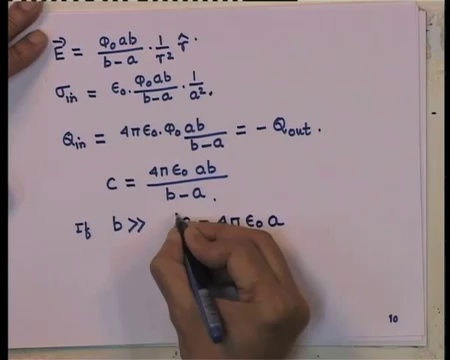 E⃗ = φ₀ab/(b-a) · 1/r² r̂.
σin = ε₀ · φ₀ab/(b-a) · 1/a².
Qin = 4πε₀ · φ₀ ab/(b-a) = - Qout.
C = 4πε₀ ab/(b-a).
If b >> 4πε₀ a
10